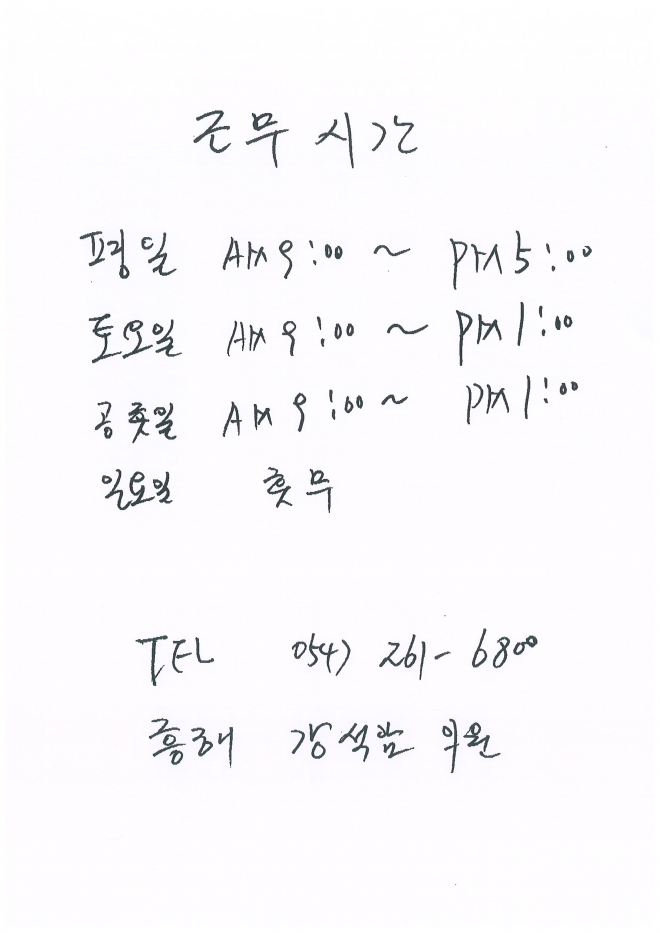 근무 시간
평일 AM 9:00 ~ PM 5:00
토요일 AM 9:00 ~ PM 1:00
공휴일 AM 9:00 ~ PM 1:00
일요일 휴무
TEL 054) 261-6800
흥해 강석암 의원